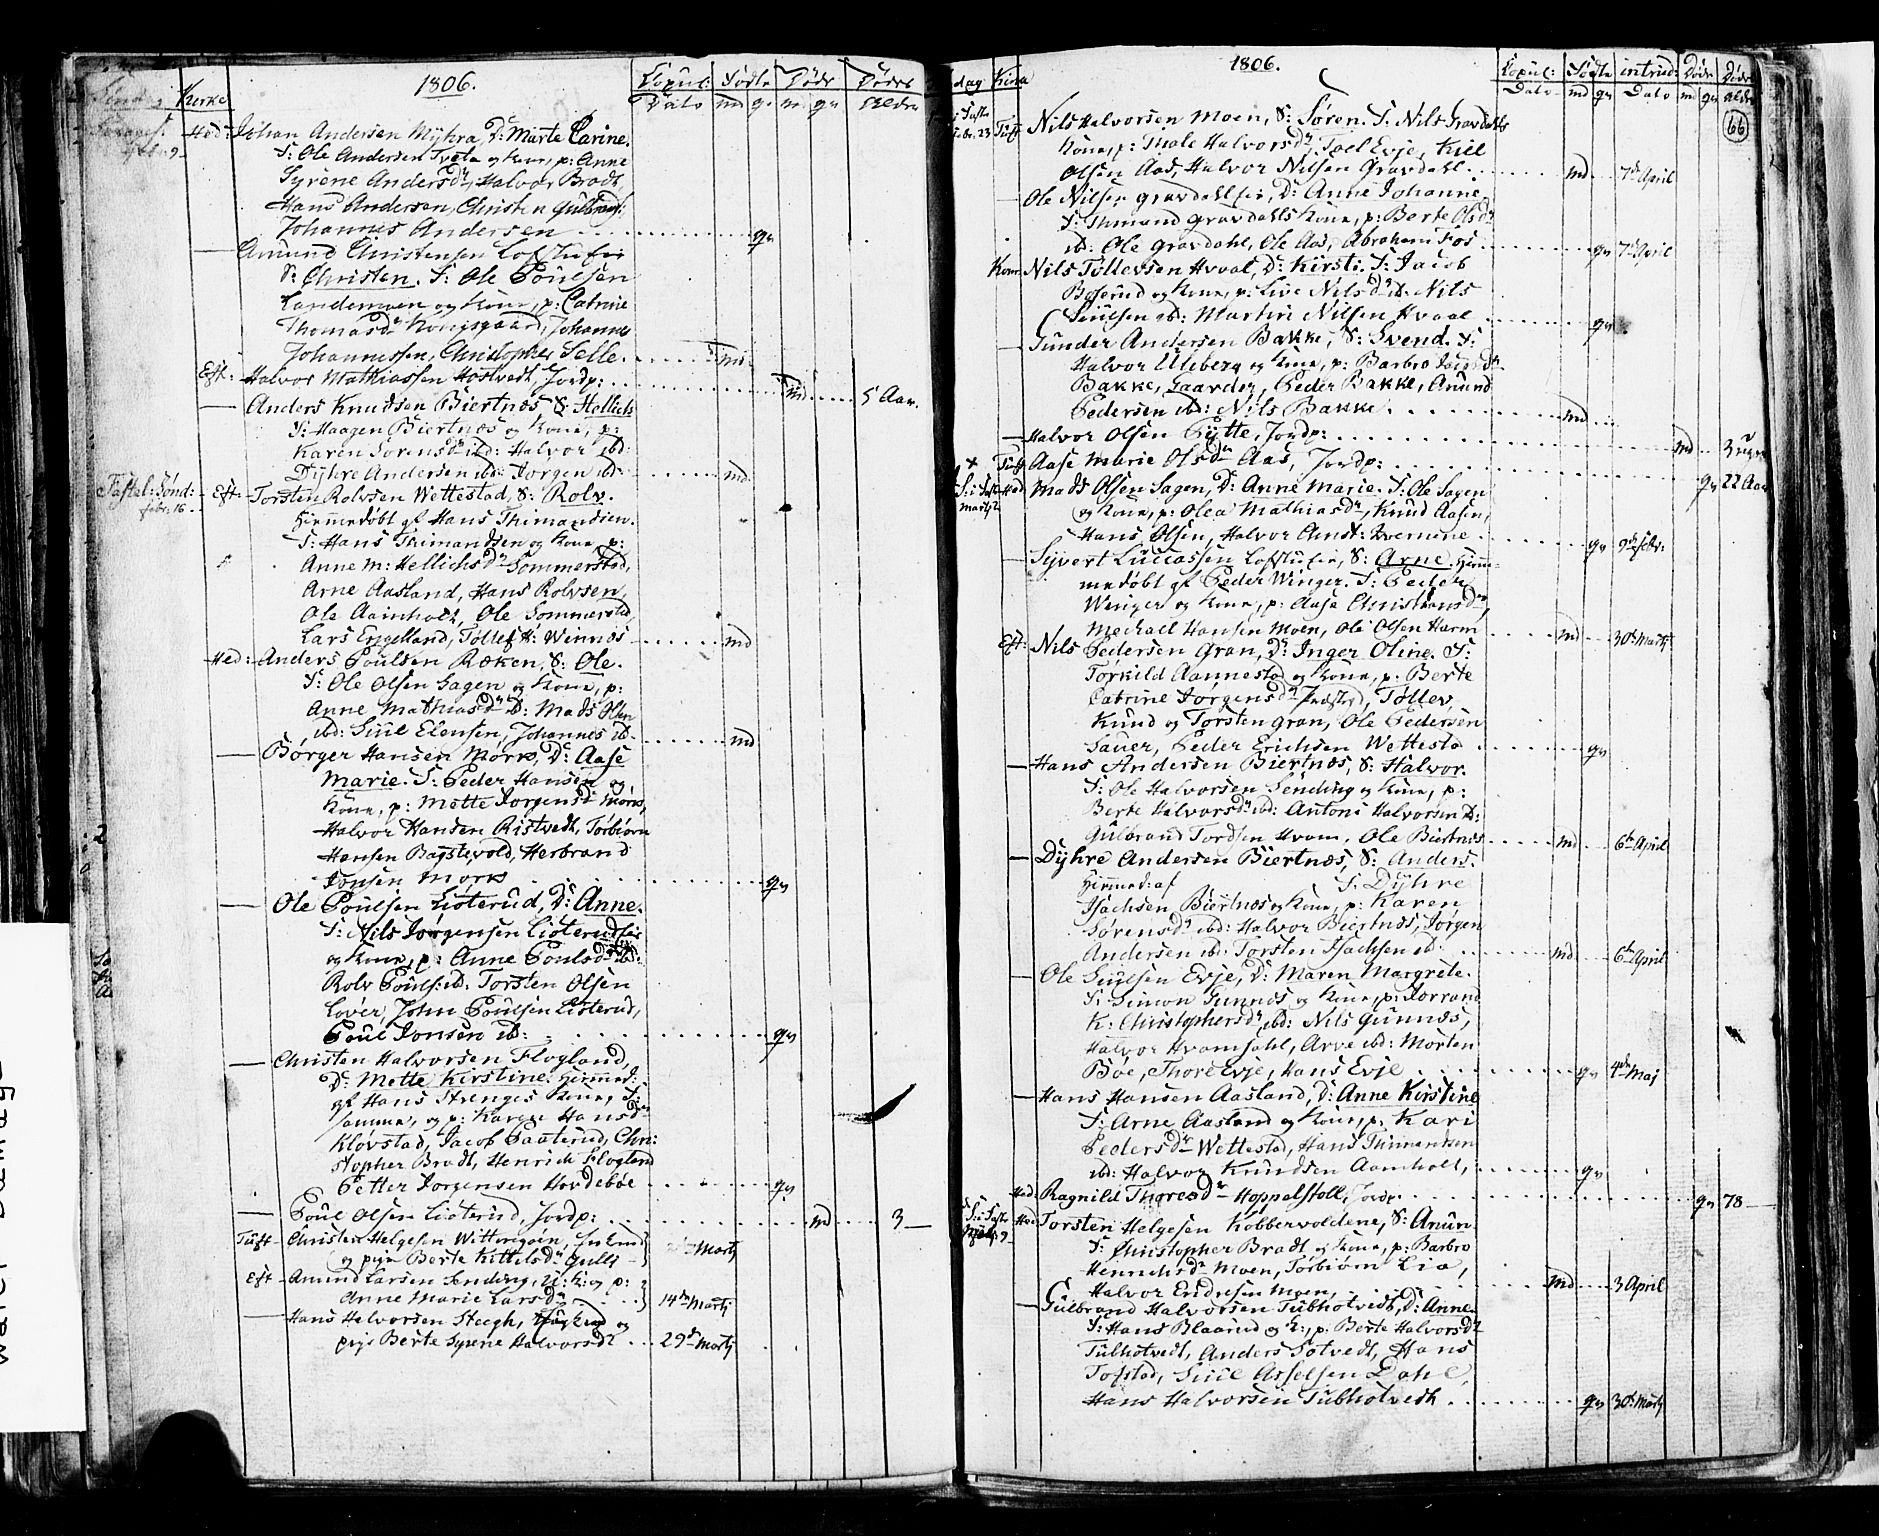 1806.
Kerke
Copul: Dato
Fødte md qv
Døde m qv
Dødes Alder
Hed: Johan Andersen Myhra, D: Marte Carine.
F: Ole Andersen Tveta og Kone, p: Anne
Syrene Andersdr, Halvor Bradt,
Hans Andersen, Christen Gulbrands:
Johannes Andersen qv
— Amund Christensen Lofstufeie
S: Christen. F: Ole Poulsen
Landemoen og Kone, p: Catrine
Thomasdr Kongsgaard, Johannes
Johannessen, Christopher Selle. md
Eft: Halvor Mathiassen Hostvedt, Jordp: md 5 Aar.
— Anders Knudsen Biertnæs, S: Hellich
F: Haagen Biertnæs og Kone, p:
Karen Sørensdr ibd: Halvor ibd:
Dyhre Andersen ibd: Jørgen ibd: md
Fastel: Sønd: febr: 16 Eft: Torsten Rolvsen Wettestad, S: Rolv.
Hiemmedøbt af Hans Thimandsen.
F: Hans Thimandsen og Kone, p:
Anne M: Hellichsdr Sommerstad,
Arne Aasland, Hans Rolvsen,
Ole Aamholt, Ole Sommerstad,
Lars Engelland, Tollef H: Wennæs md
Hed: Anders Poulsen Ræken, S: Ole.
F: Ole Olsen Sagen og Kone, p:
Anne Mathiasdr ib: Mads Olsen
ibd: Siul Elensen, Johannes ib. md
— Børger Hansen Mørk, D: Aase
Marie. F: Peder Hansen og
Kone, p: Mette Jørgensdr Mørk,
Halvor Hansen Ristvedt, Torbiørn
Hansen Bagstevold, Herbrand
Jonsen Mørk qv
— Ole Poulsen Lioterud, D: Anne.
F: Nils Jørgensen Lioterudeie
og Kone, p: Anne Poulsdr ibd:
Rolv Pouls: ibd: Torsten Olsen
Lover, John Poulsen Lioterud,
Poul Jonsen ibd: qv
— Christen Halvorsen Flogland,
D: Mette Kirstine. Hiemmed:
af Hans Strenges Kone, F:
samme, og p: Karen Hansdr
Klovstad, Jacob Paaterud, Chri:
stopher Bradt, Henrich Flogland
Petter Jørgensen Hovdebøe qv
— Poul Olsen Lioterud, Jordp: md 3 —
Tuft — Christen Helgesen Wittingein, Enkemd
og pige Berte Kittelsdr Gulli Martj
Eft — Amund Larsen Sending, U: K: og p:
Anne Marie Larsdr 14de Martj
— Hans Halvorsen Steegh, og
pige Berte Syrene Halvorsdr 29de Martj
1806.
dag Kirke
Copul: Dato
Fødte md qv
introd: Dato
Døde m qv
Dødes Alder
66
febr. 23 Tuft Nils Halvorsen Moen, S: Søren. F: Nils Gravdahls
Kone, p: Thale Halvorsdr, Joel Evje, Kiel
Olsen Aas, Halvor Nilsen Gravdahl. md 7de April
— Ole Nilsen Gravdahleie, D: Anne Johanne,
F: Thimand Gravdahls Kone, p: Berte Olsdr
ib: Ole Gravdahl, Ole Aas, Abraham Fos qv 7de April
Kom: Nils Tollevsen Hvaal, D: Kirsti. F: Jacob
Boserud og Kone, p: Live Nilsdr ib: Nils
Siulsen ibd: Martin Nilsen Hvaal qv
— Gunder Andersen Bakke, S: Svend. F:
Halvor Ulleberg og Kone, p: Barbro
Bakke, Gaarder, Peder Bakke, Anund
Pedersen ibd: Nils Bakke md
— Halvor Olsen Pytte, Jordp: md 3 uger
Tuft Aase Marie Olsdr Aas, Jordp: qv 22 Aar
Martj 2 Hed: Mads Olsen Sagen, D: Anne Marie. F: Ole Sagen
og Kone, p: Olea Mathiasdr, Knud Aasen,
Hans Olsen, Halvor Amst: Kvernene qv 9de febr:
— Syvert Luccassen Lofstufeie, S: Arne. Hiem-
medøbt af Peder Winger. F: Peder
Winger og Kone, p: Aase Christiansdr,
Mechael Hansen Moen, Ole Olsen Harm md 30de Martj
Eft: Nils Pedersen Gran, D: Inger Oline. F:
Torkild Aannestad og Kone, p: Berte
Catrine Jørgensdr Prestrd, Tollev,
Knud og Torsten Gran, Ole Pedersen
Sauer, Peder Erichsen Wettesta qv
— Hans Andersen Biertnæs, S: Halvor.
F: Ole Halvorsen Sending og Kone, p:
Berte Halvorsdr ibd: Antoni Halvorsen ib:
Gulbrand Tordsen Hvam, Ole Biertnæs md 6te April
— Dyhre Andersen Biertnæs, S: Anders.
Hiemmed: af F: Dyhre
Isachsen Biertnæs og Kone, p: Karen
Sørensdr ibd: Halvor Biertnæs, Jørgen
Andersen ib: Torsten Isachsen ib: md 6te April
— Ole Siulsen Evje, D: Maren Margrete.
F: Simon Gunnæs og Kone, p: Jorrand
K: Christophersdr ibd: Nils Gunnæs,
Halvor Hvamsahl, Arve ibd: Morten
Bøe, Thore Evje, Hans Evje qv 4de Maj
— Hans Hansen Aasland, D: Anne Kirstine
F: Arne Aasland og Kone, p: Kari
Pedersdr Wettestad, Hans Thimandsen
ibd: Halvor Knudsen Aamholt, qv
Hed: Ragnild Thoresdr Hoppelstoll, Jordp: qv 78 —
Hed Torsten Helgesen Kobbervoldene, S: Anun.
F: Christopher Bradt og Kone, p: Barbro
Henrichsdr Moen, Torbiørn Lia,
Halvor Endresen Moen, md 3 April
— Gulbrand Halvorsen Tubhotvedt, D: Anne.
F: Hans Blaarud og K:, p: Berte Halvorsdr
Tubhotvedt, Anders Sotvedt, Hans
Tofstad, Siul Asselsen Dahl,
Hans Halvorsen Tubhotvedt qv 30de Martj